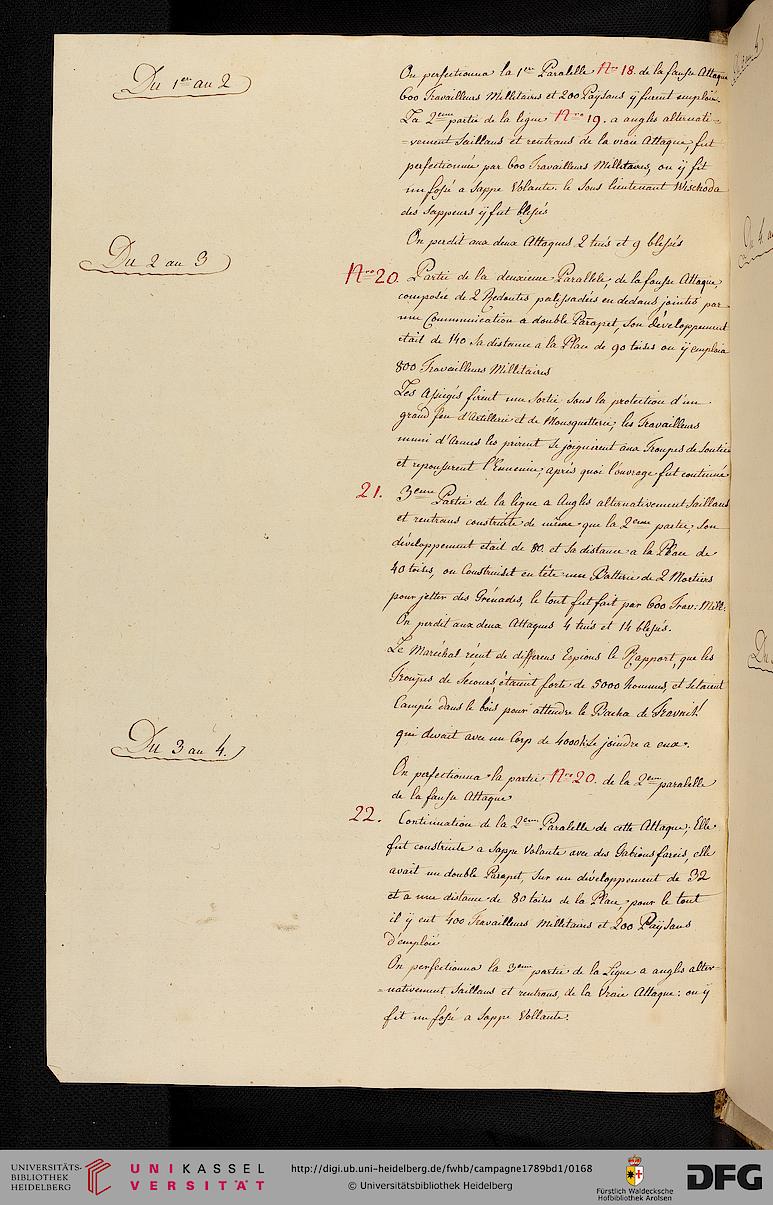 Du 1er au 2
On perfectionna la 1ere Paralelle Nro 18. de la fausse Attaque
600 Travailleurs Millitaires et 200 Paÿsans ÿ furent emploié.
La 2eme partie de la ligne Nro 19. a angles alternati=
=vement Saillans et rentrans de la vraie Attaque, fut
perfectionnée par 600 Travailleurs Millitaires, on ÿ fit
un fossé a Sappe Volante. le Sous lieutenant Wischoda
des Sappeurs ÿ fut blessés
On perdit aux deux Attaques 2 tués et 9 blessés
Du 2 au 3
Nro 20. Partie de la deuxieme Parallele, de la fausse Attaque,
composée de 2 Redoutes palissadées en dedans jointes par
une Communication a double Parapet, Son développement
etait de 140 Sa distance a la Place de 90 toises on ÿ emploia
800 Travailleurs Millitaires
Les Assiegés firent une Sortie Sous la protection d'un
grand feu d'Artillerie et de Mousquetterie, les Travailleurs
muni d'Armes les prirent Se joignirent aux Troupes de Soutien
et repousserent l'Ennemie, après quoi l'ouvrage fut continué
21. 3eme Partie de la ligne a Angles alternativement Saillans
et rentrans construite de même que la 2eme partie, Son
développement etait de 80. et Sa distance a la Place de
40 toises, on Construisit en tête une Batterie de 2 Mortiers
pour jetter des Grénades, le tout fut fait par 600 Trav: Mill:
On perdit aux deux Attaques 4 tués et 14 blessés.
Le Maréchal réçut de differens Espions le Rapport, que les
Troupes de Secours étaient forte de 5000 hommes, et Setaient
Campée dans le bois pour attendre le Bacha de Travnik
qui devait avec un Corp de 4000 h: Se joindre a eux.
Du 3 au 4.
On perfectionna la partie Nro 20. de la 2eme paralelle
de la fausse Attaque
22. Continuation de la 2eme Paralelle de cette Attaque; Elle
fut construite a Sappe Volante avec des Gabions farcis, elle
avait un double Parapet, Sur un développement de 32
et a une distance de 80 toises de la Place, pour le tout
il ÿ eut 400 Travailleurs Millitaires et 200 Paÿsans
d'emploié
On perfectionna la 3eme partie de la Ligne a angles alter=
=nativement Saillans et rentrans, de la Vraie Attaque: on ÿ
fit un fossé a Sappe Vollante.
UNIVERSITÄTS-
BIBLIOTHEK
HEIDELBERG
UNIKASSEL
VERSITÄT
http://digi.ub.uni-heidelberg.de/fwhb/campagne1789bd1/0168
© Universitätsbibliothek Heidelberg
Fürstlich Waldecksche
Hofbibliothek Arolsen
DFG